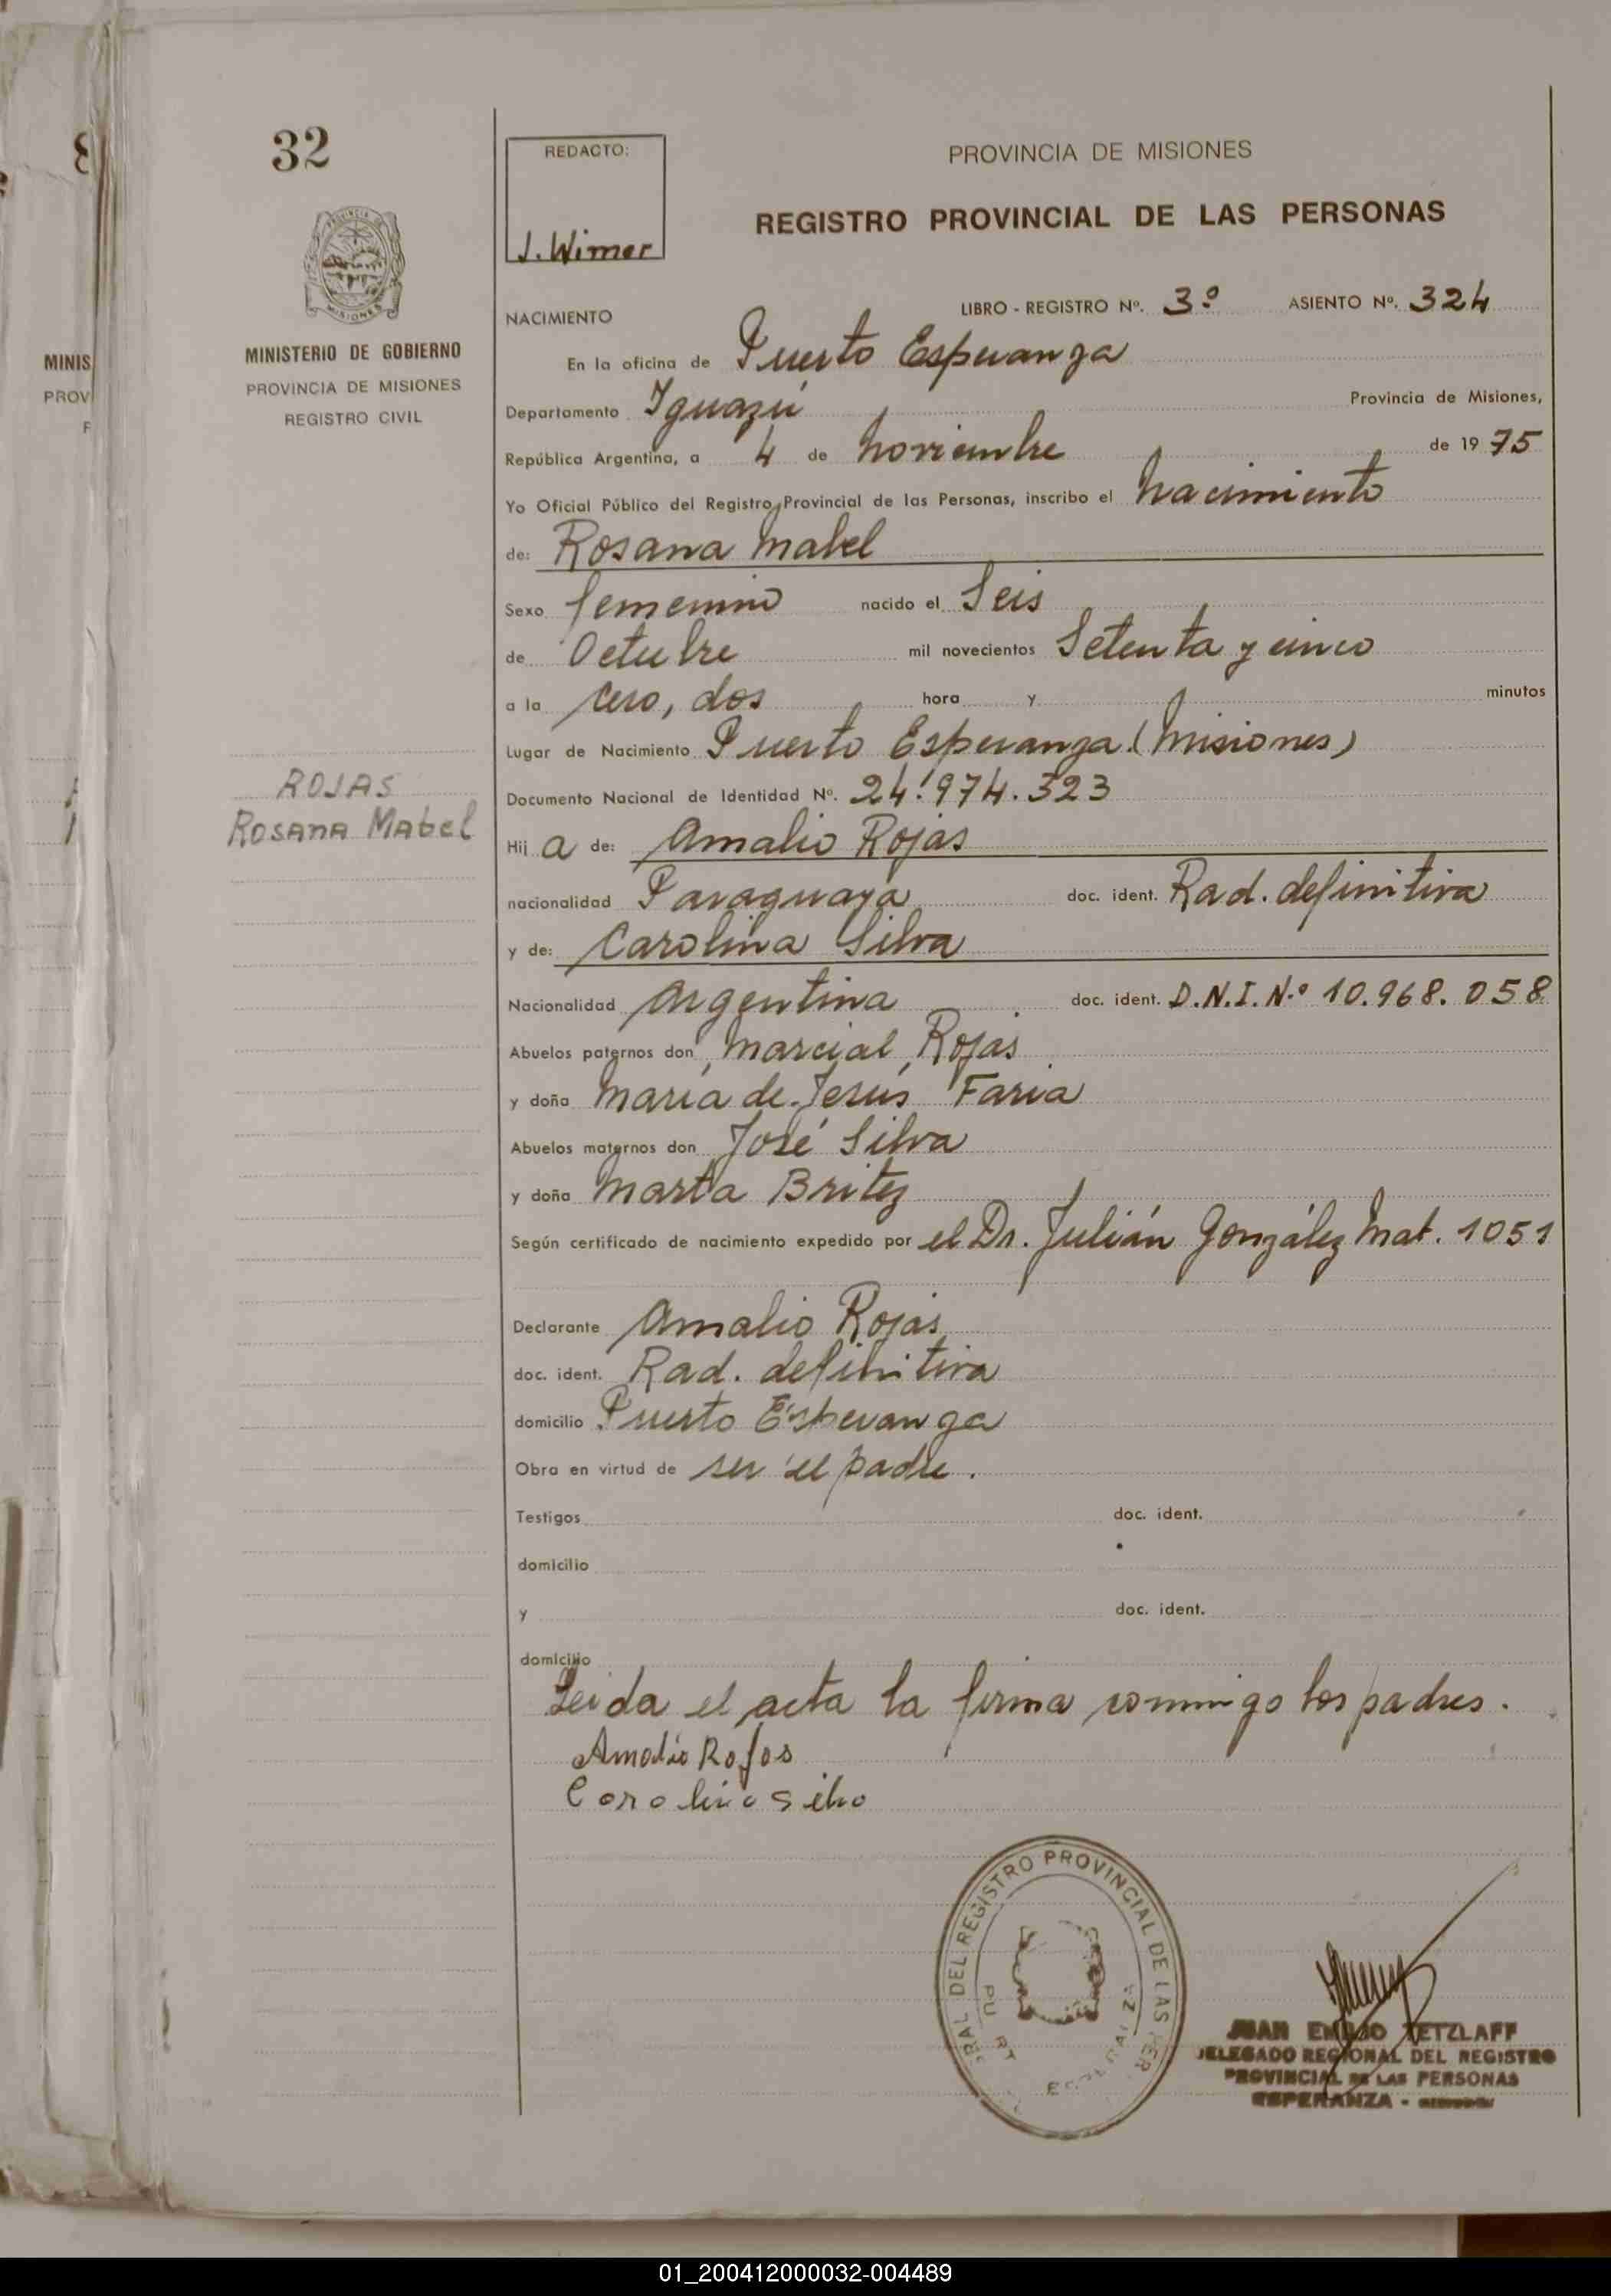 32
MINISTERIO DE GOBIERNO
PROVINCIA DE MISIONES
REGISTRO CIVIL
ROJAS
ROSANA MABEL
MINIS
PROV
REDACTO:
J. Wimer
PROVINCIA DE MISIONES
REGISTRO PROVINCIAL DE LAS PERSONAS
NACIMIENTO LIBRO - REGISTRO Nº. 3º ASIENTO Nº. 324
En la oficina de Puerto Esperanza
Departamento Iguazú Provincia de Misiones,
República Argentina, a 4 de noviembre de 19 75
Yo Oficial Público del Registro Provincial de las Personas, inscribo el nacimiento
de: Rosana Mabel
Sexo femenino nacido el Seis
de Octubre mil novecientos Setenta y cinco
a la cero, dos hora y minutos
Lugar de Nacimiento Puerto Esperanza (Misiones)
Documento Nacional de Identidad Nº. 24.974.323
Hij a de: Amalio Rojas
nacionalidad Paraguaya doc. ident. Rad. definitiva
y de: Carolina Silva
Nacionalidad Argentina doc. ident. D.N.I. N.º 10.968.058
Abuelos paternos don Marcial Rojas
y doña María de Jesús Faria
Abuelos maternos don José Silva
y doña Marta Britez
Según certificado de nacimiento expedido por el Dr. Julián González Mat. 1051
Declarante Amalio Rojas
doc. ident. Rad. definitiva
domicilio Puerto Esperanza
Obra en virtud de ser el padre.
Testigos doc. ident.
domicilio
y doc. ident.
domicilio
Leida el acta la firma conmigo los padres.
Amalio Rojas
Carolina Silva
DEL REGISTRO PROVINCIAL DE LAS PER
JUAN EMILIO TETZLAFF
DELEGADO REGIONAL DEL REGISTRO
PROVINCIAL DE LAS PERSONAS
ESPERANZA -
01_200412000032-004489